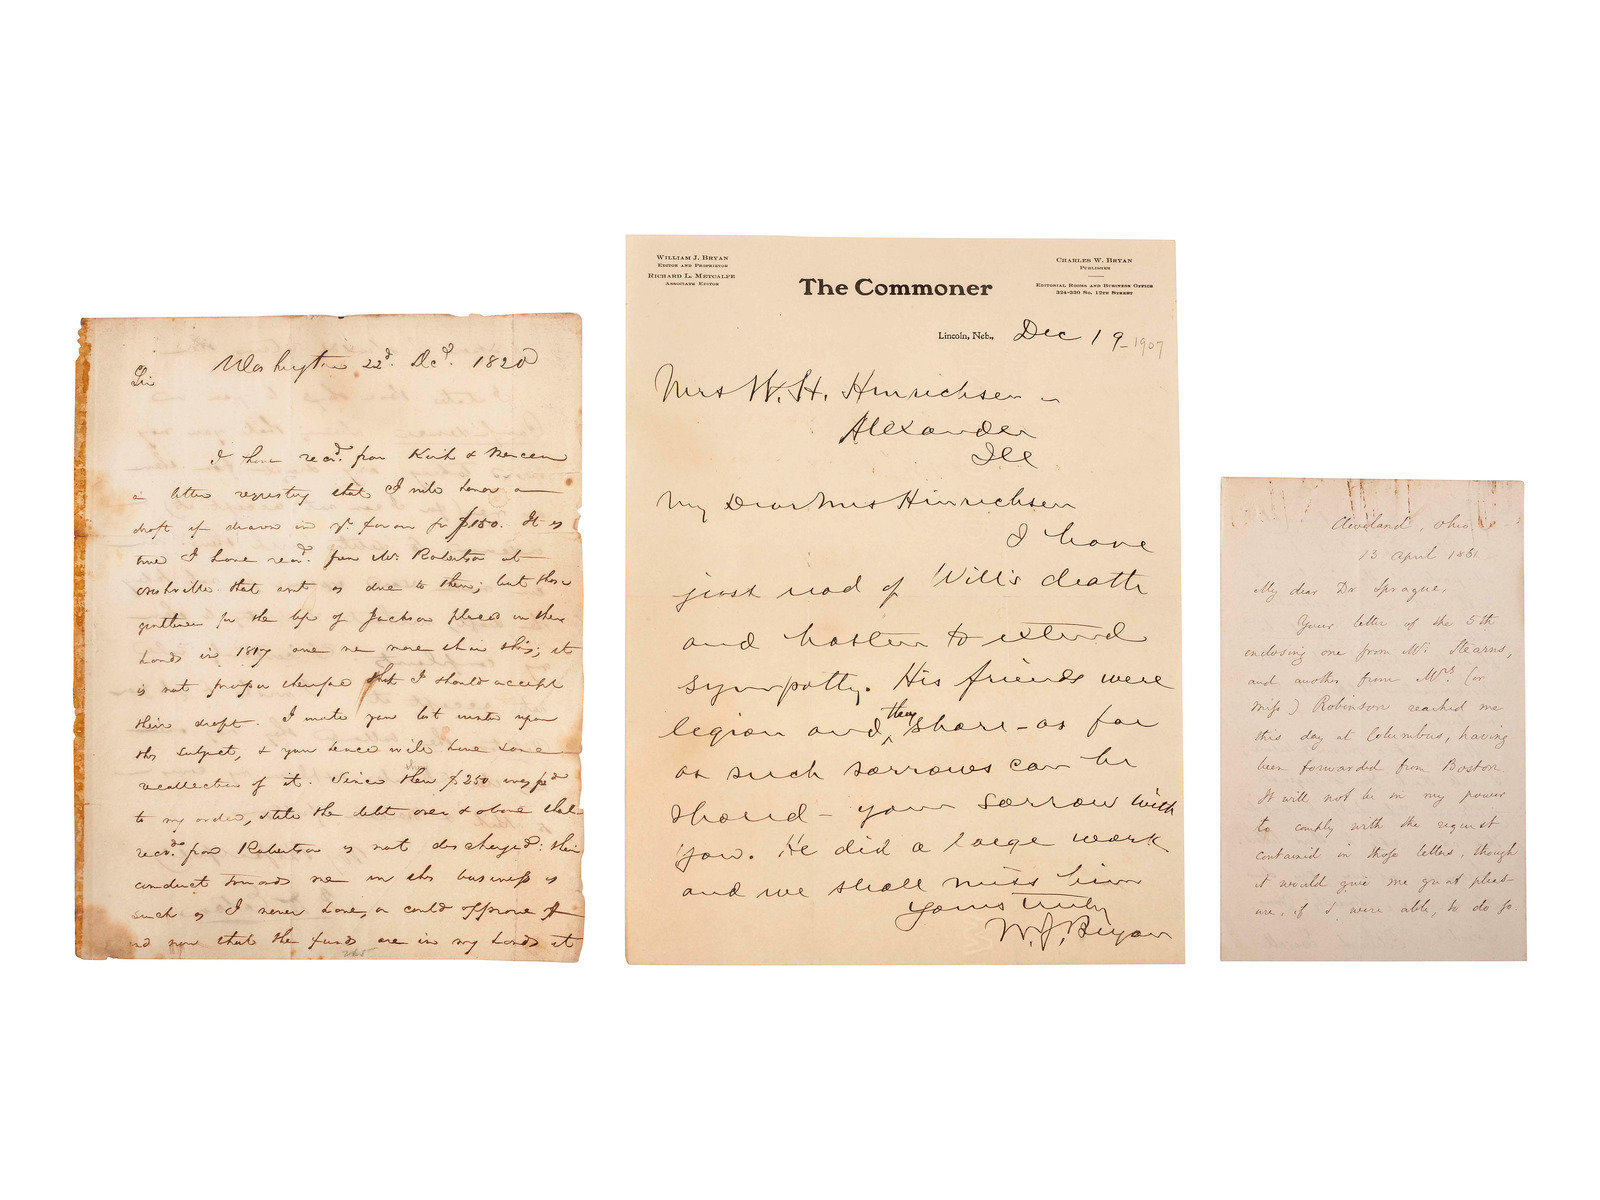 Washington 22d. Decr. 1820
Sir
I have recd. from Kirk &
a letter requesting that I will honor a
draft if drawn in yr. favour for $150. It is
true I have recd. from Mr. Robertson at
that amt as due to them; but those
gentlemen for the of Jackson placed in their
hands in 1817 one note more than this; it
is not proper therefore that I should accept
their draft. I wrote you last winter upon
this subject, & you hence will have some
recollection of it. Since then $250 was pd
to my order, still the debt over & above that
recd. from Robertson is not discharged: their
conduct towards me in this business is
such as I never have, or could approve of
and now that the funds are in my hands it
WILLIAM J. BRYAN
EDITOR AND PROPRIETOR
RICHARD L. METCALFE
ASSOCIATE EDITOR
The Commoner
CHARLES W. BRYAN
PUBLISHER
EDITORIAL ROOMS AND BUSINESS OFFICE
324-330 SO. 12TH STREET
Lincoln, Neb., Dec 19 1907
Mrs W. H. Hinrichsen
Alexander
Ill
My Dear Mrs Hinrichsen
I have
just read of Will's death
and hasten to extend
sympathy. His friends were
legion and they share - as far
as such sorrows can be
shared - your sorrow with
you. He did a large work
and we shall miss him
Yours truly
W. J. Bryan
Cleveland, Ohio,
13 April 1861.
My dear Dr Sprague,
Your letter of the 5th
enclosing one from Mr. Stearns,
and another from Mrs. (or
Miss) Robinson reached me
this day at Columbus, having
been forwarded from Boston.
It will not be in my power
to comply with the request
contained in those letters, though
it would give me great pleas-
ure, if I were able, to do so.